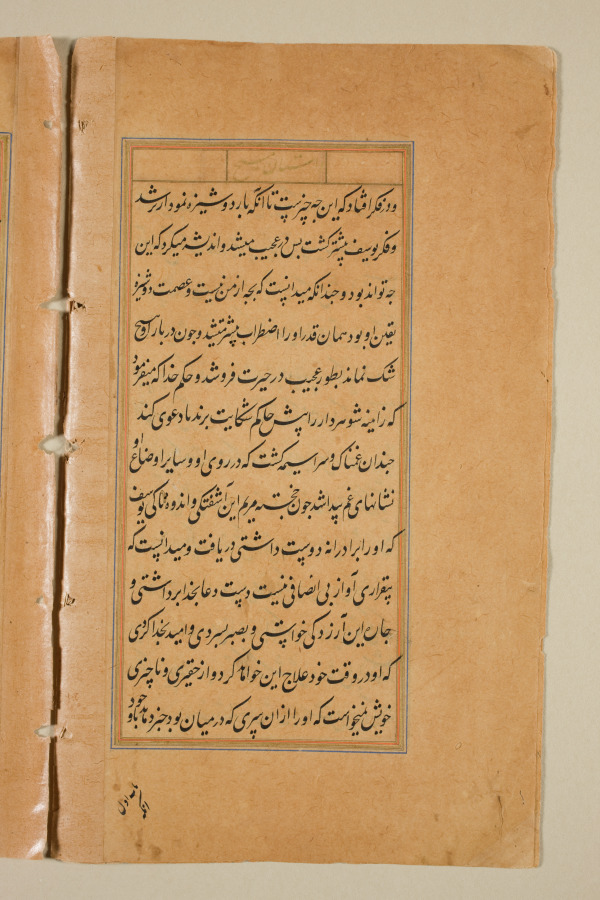 داستان مسیح
و در فکر افتاد که این چه چیزست تا آنکه بار دوشیزه نمودار تر شد
و فکر یوسف بیشتر گشت بس در عجیب میشد و اندیشه میکرد که این
چه تواند بود و چندانکه میدانست که بچه از من نیست و عصمت دوشیزه
یقین او بود همان قدر او را اضطراب بیشتر میشد و چون در بار او هیچ
شک نماند بطور عجیب در حیرت فرو شد و حکم خدا که میفرمود
که زانیه شوهردار را پیش حاکم شکایت برند یا دعوی کند
چندان غمناک و سراسیمه گشت که در روی او و سایر اوضاع او
نشانهای غم پیدا شد چون خجسته مریم این آشفتگی و اندوهناکی یوسف
که او را برادرانه دوست داشتی دریافت و میدانست که
بیقراری او از بی انصافی نیست دست دعا بخدا برداشتی و
جان این آرزو کی خواستی و بصبر بسر بردی و امید بخدا کردی
که او در وقت خود علاج این خواهد کرد و از حقیری و ناچیزی
خویش نمیخواست که او را از آن سری که در میان بود خبر دهد باوجود